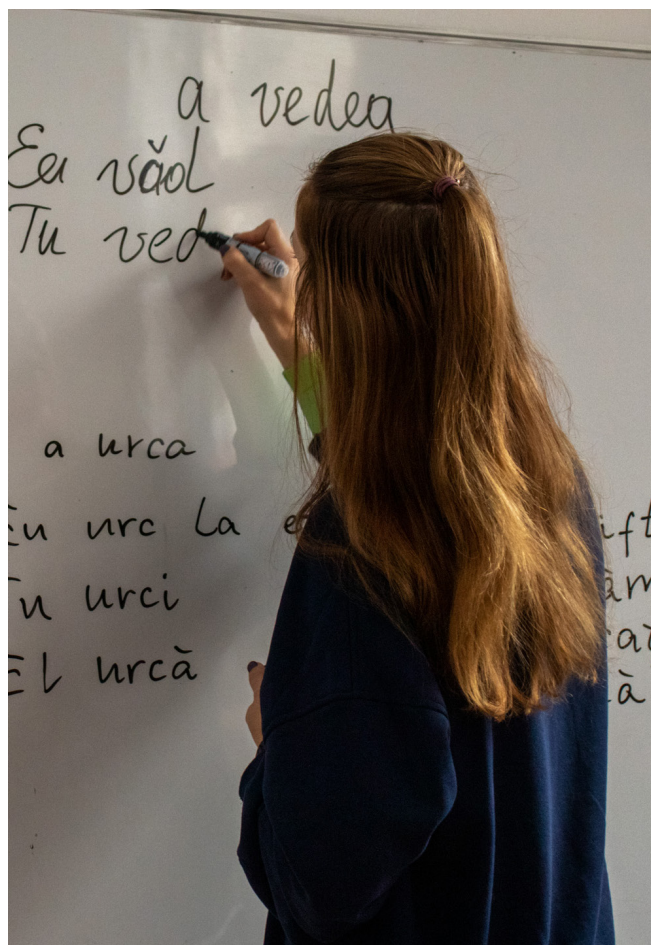 a vedea
Eu văd
Tu ved
a urca
Eu urc la
Tu urci
El urcà